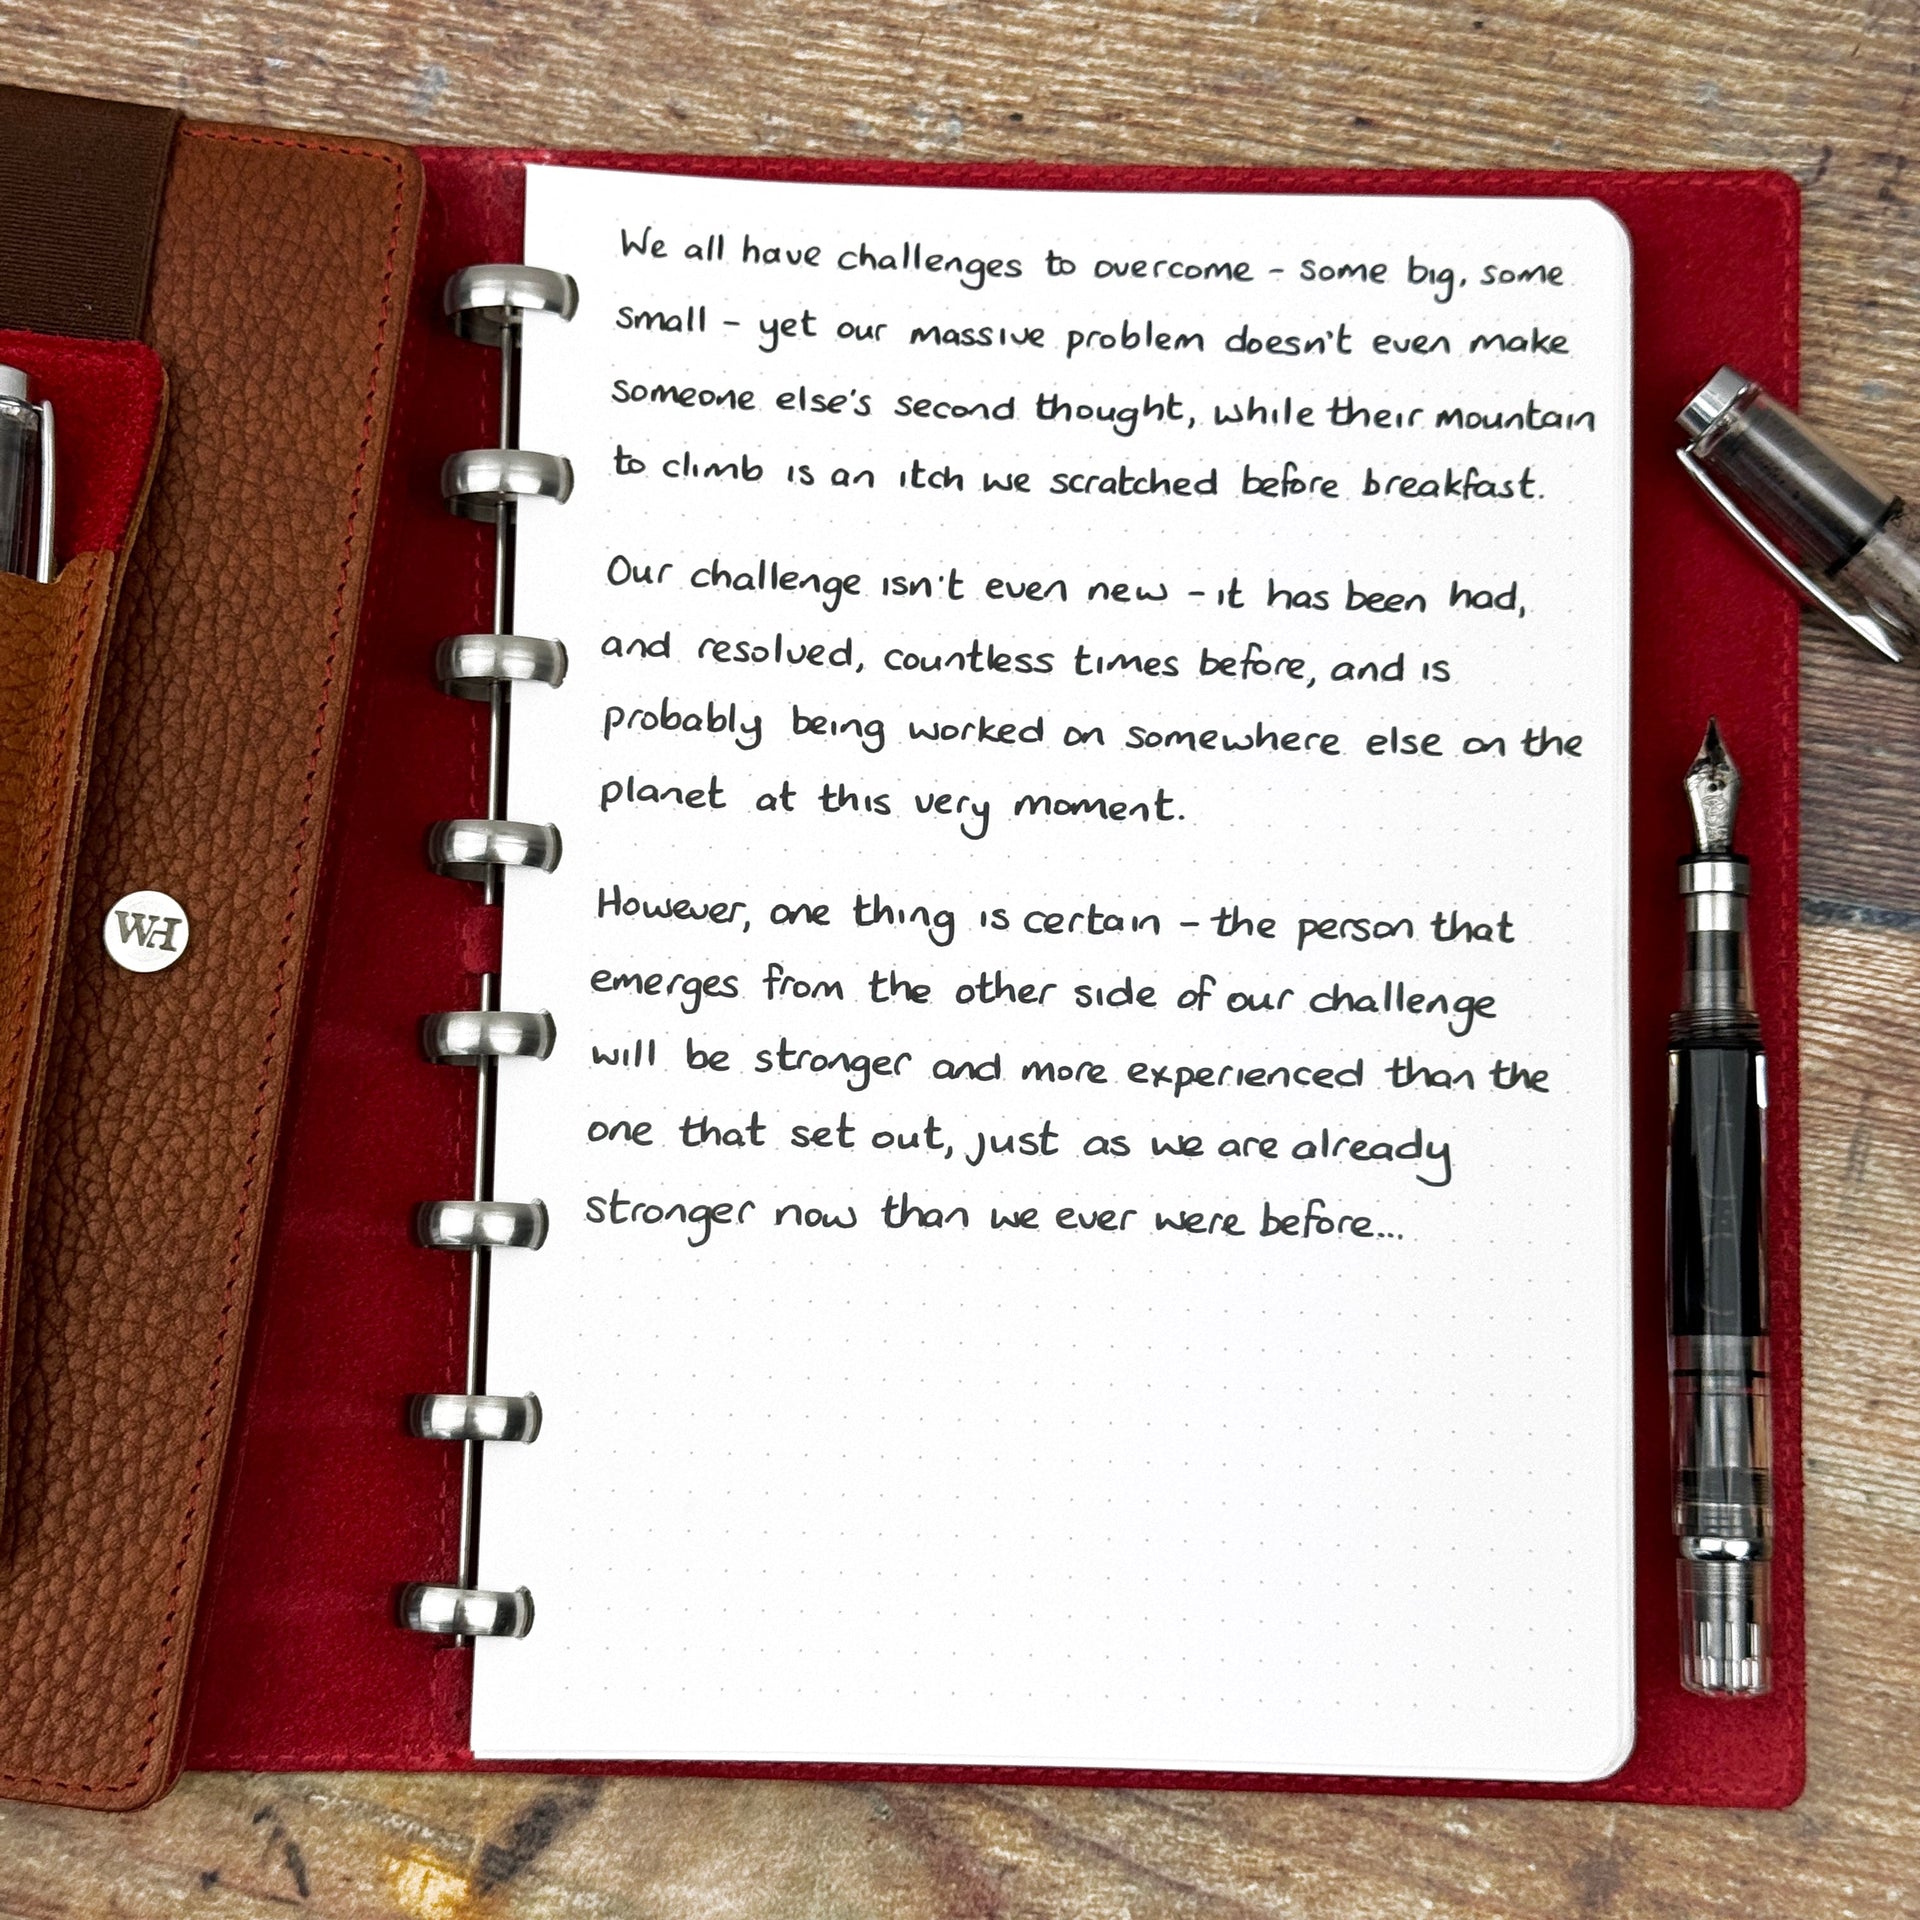 We all have challenges to overcome - some big, some
small - yet our massive problem doesn't even make
someone else's second thought, while their mountain
to climb is an itch we scratched before breakfast.
Our challenge isn't even new - it has been had,
and resolved, countless times before, and is
probably being worked on somewhere else on the
planet at this very moment.
However, one thing is certain - the person that
emerges from the other side of our challenge
will be stronger and more experienced than the
one that set out, just as we are already
stronger now than we ever were before...
WH